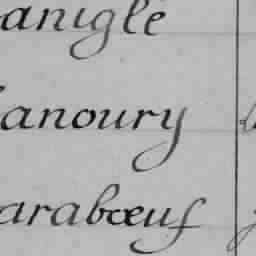 anigle
anoury
arabœuf